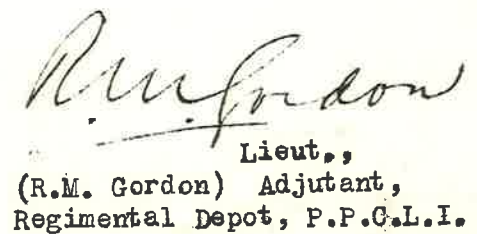 R.M. Gordon
Lieut.,
(R.M. Gordon) Adjutant,
Regimental Depot, P.P.C.L.I.